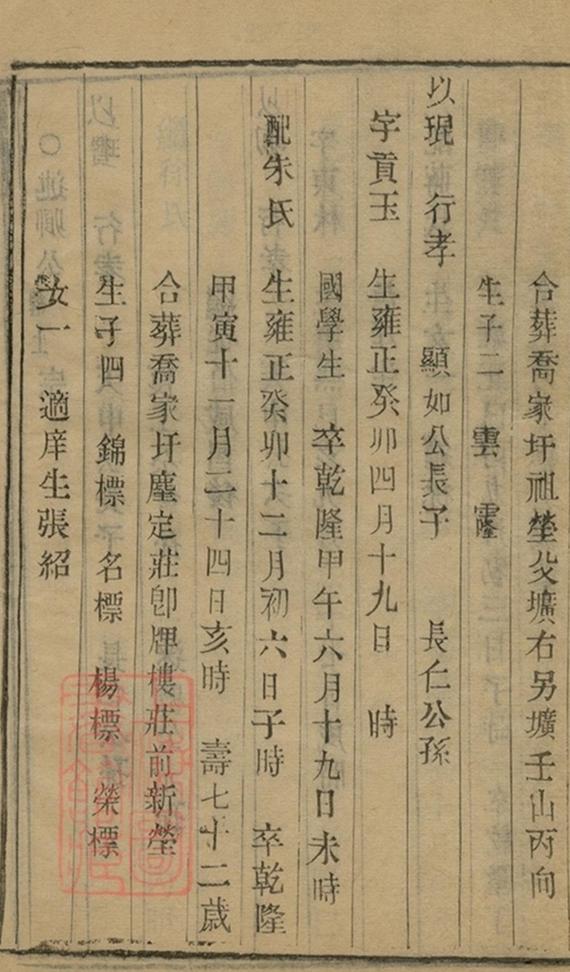 合葬喬家圩祖塋父壙右另壙壬山丙向
生子二　雲　霳
以琨　行孝　顯如公長子　長仁公孫
字貢玉　生雍正癸卯四月十九日　時
國學生　卒乾隆甲午六月十九日未時
配朱氏　生雍正癸卯十二月初六日子時　卒乾隆
甲寅十一月二十四日亥時　壽七十二歲
合葬喬家圩塵定莊卽牌樓莊前新塋
生子四　錦標　名標　楊標　榮標
女一　適庠生張紹